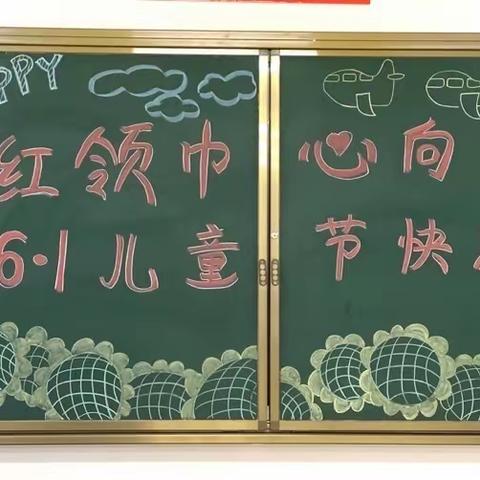 PPY
红领巾心向
6·1儿童节快